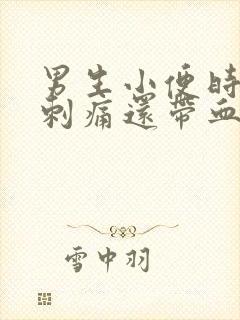 男生小便時
刺痛還帶血
雪中羽